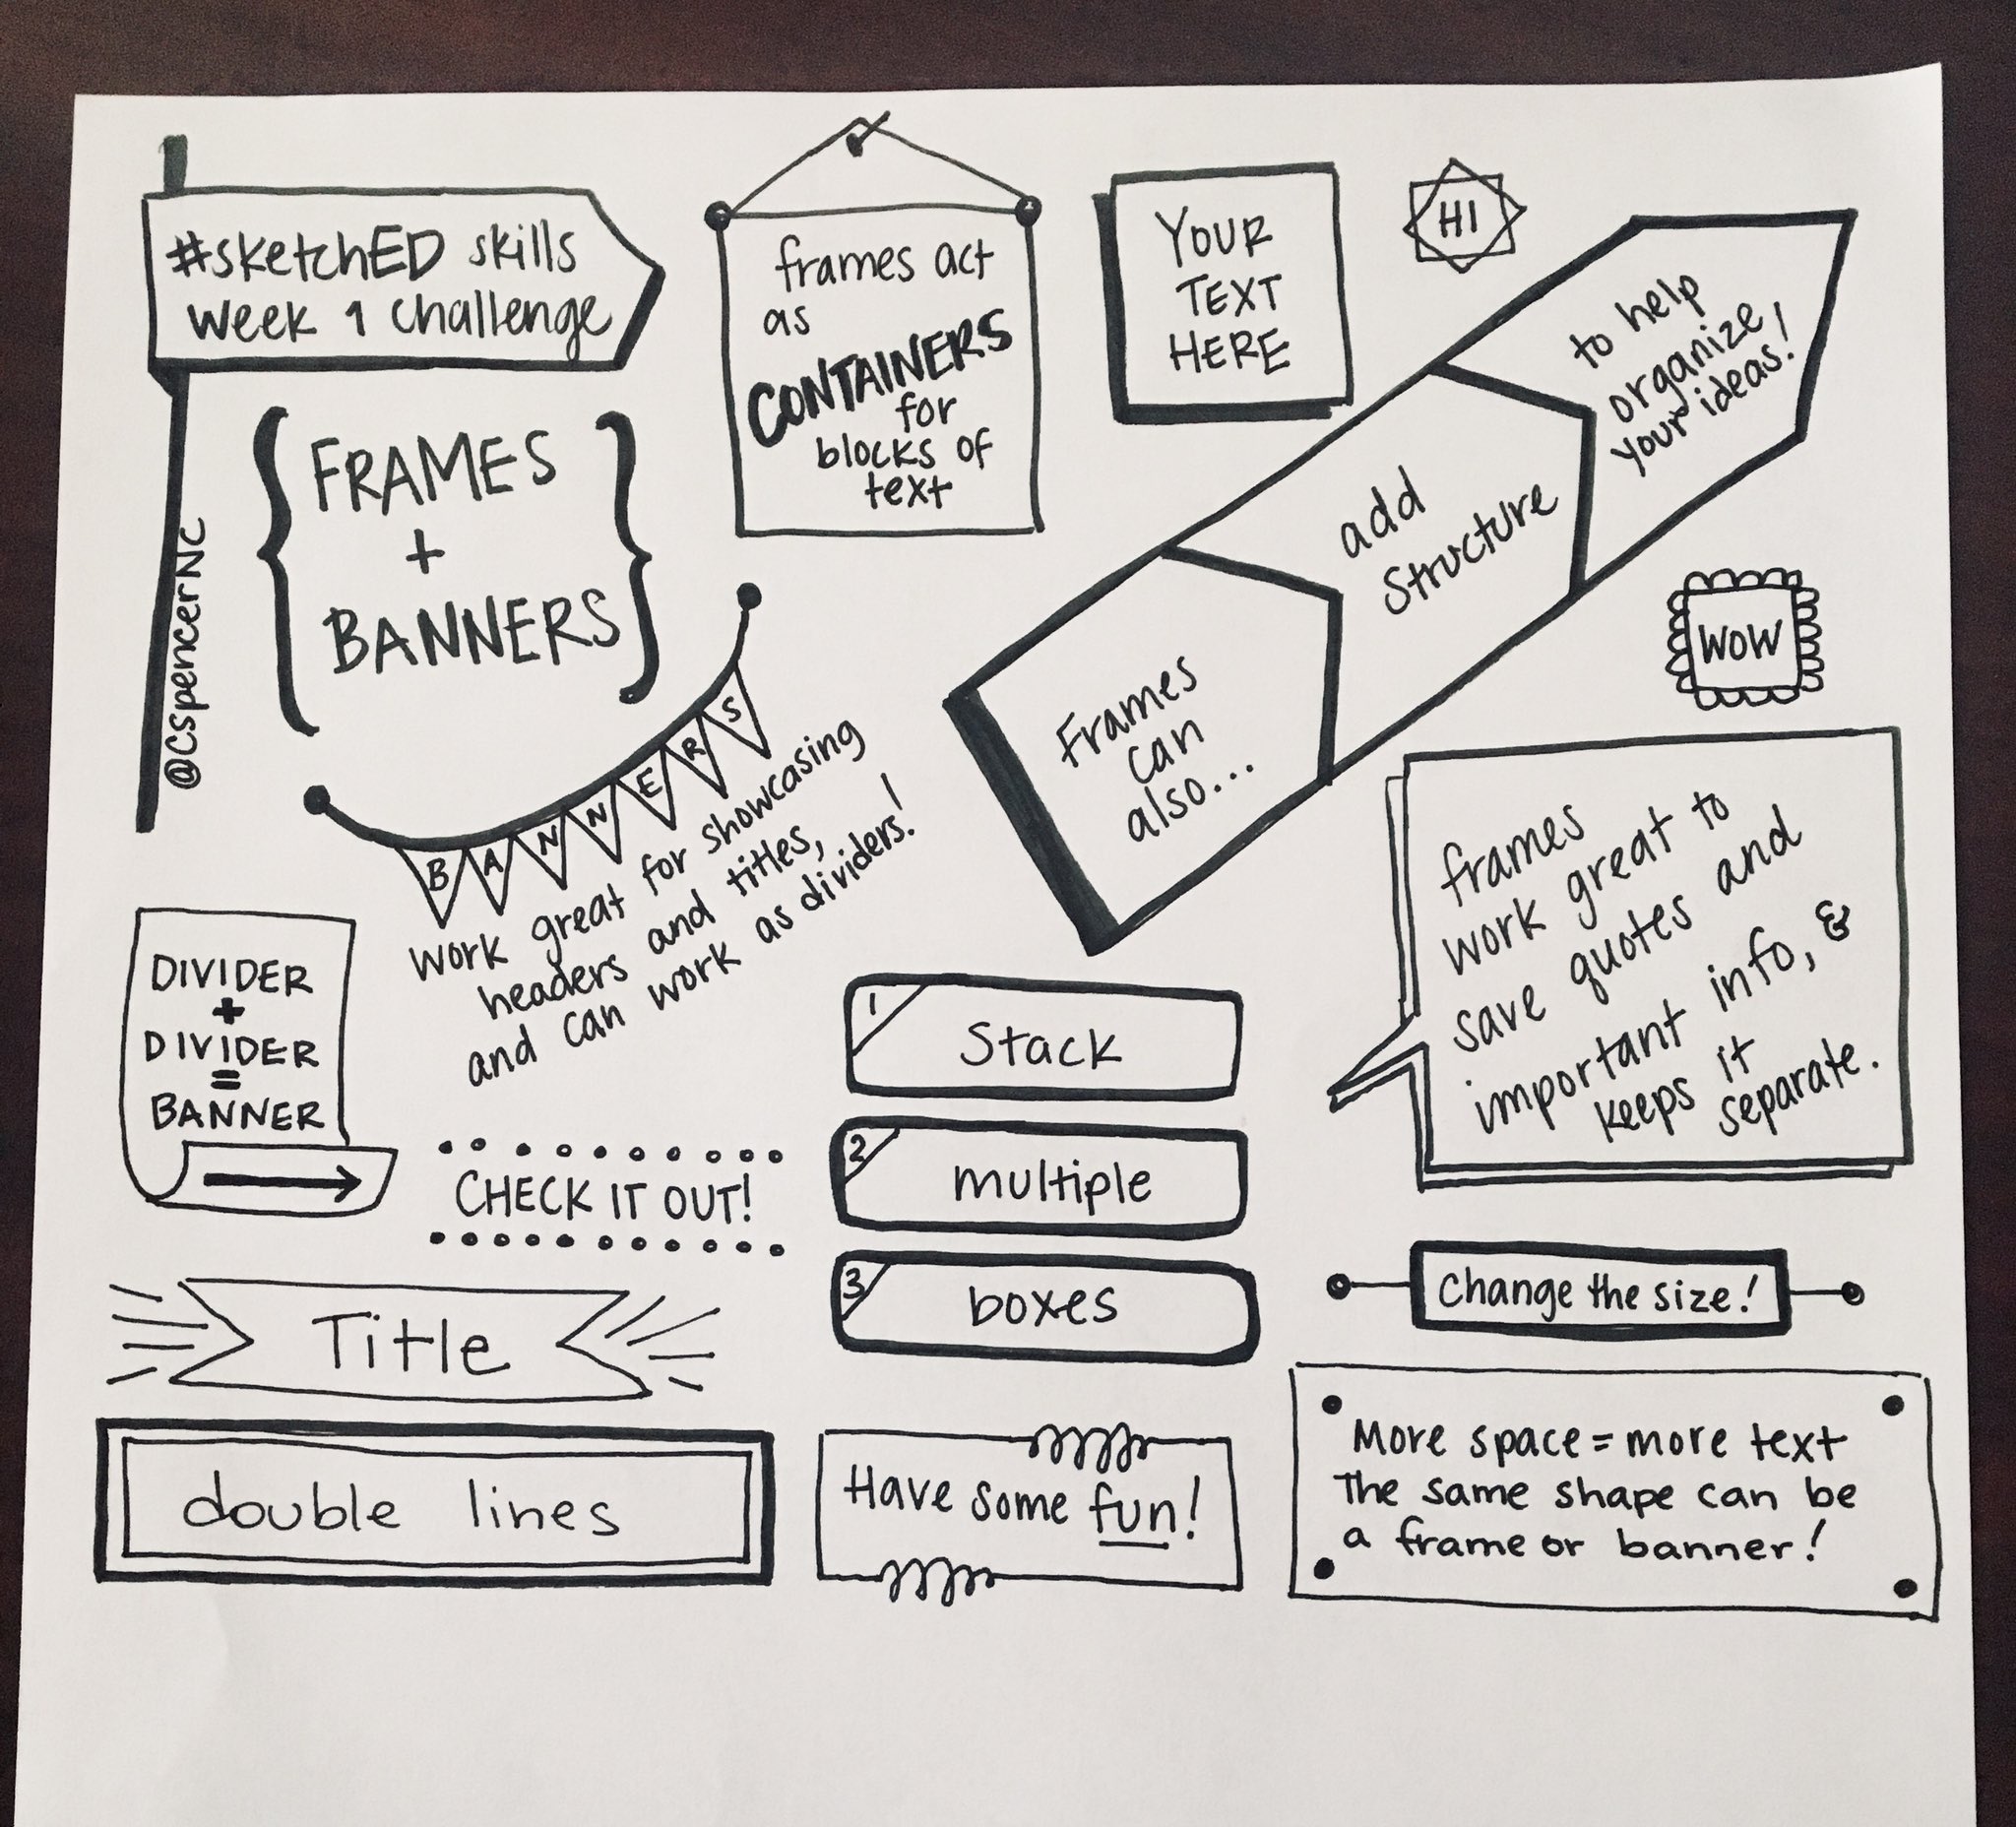 #sketchED skills
week 1 challenge
@cspencerNC
FRAMES
+
BANNERS
frames act
as
CONTAINERS
for
blocks of
text
YOUR
TEXT
HERE
HI
Frames
can
also...
add
Structure
to help
organize
your ideas!
WOW
BANNERS
work great for showcasing
headers and titles,
and can work as dividers!
frames
work great to
save quotes and
important info, &
keeps it
separate.
DIVIDER
+
DIVIDER
=
BANNER
CHECK IT OUT!
1
Stack
2
multiple
3
boxes
Change the size!
Title
double lines
Have some fun!
More space = more text
The same shape can be
a frame or banner!